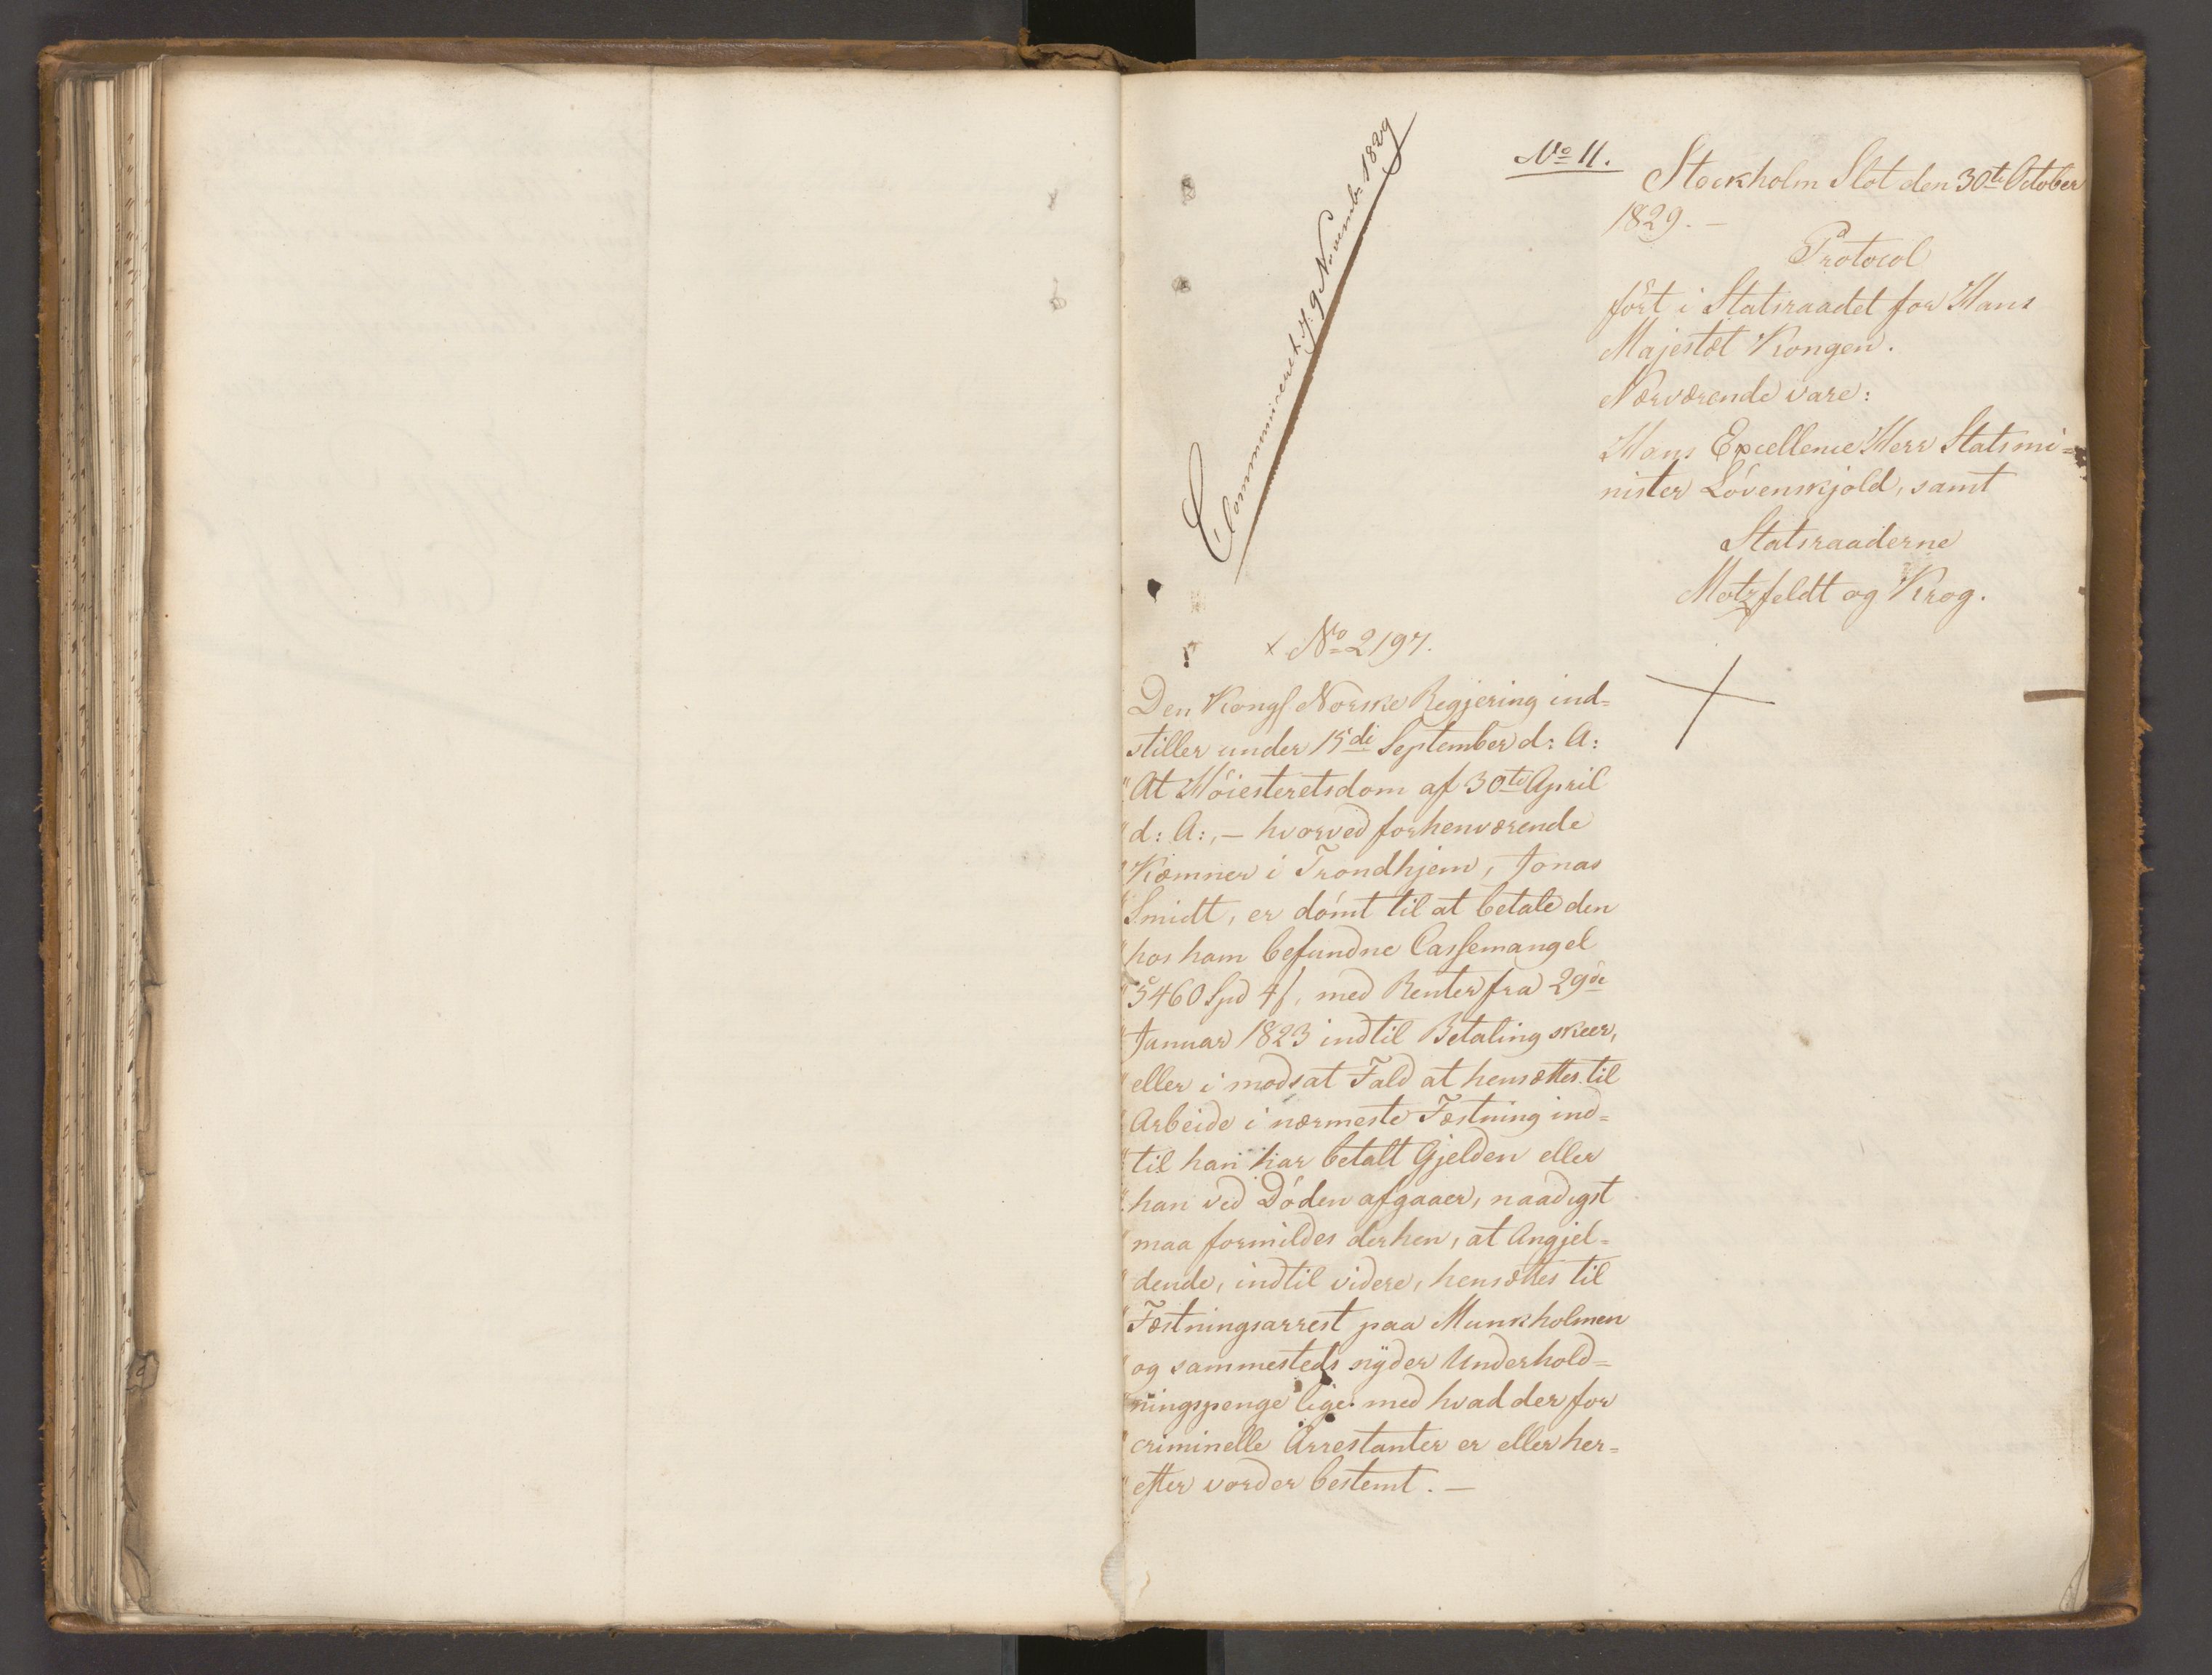 Communiceret. d: 9 November 1829
No 11.
Stockholm Slot den 30te October
1829. —
Protocol
fört i Statsraadet for Hans
Majestæt Kongen.
Nærværende vare:
Hans Excellence Herr Statsmi=
nister Lóvenskjold, samt
Statsraaderne
Motzfeldt og Krog.
x No 2197.
Den Kongl Norske Regjering ind=
stiller under 15de September d: A:
"At Hóiesteretsdom af 30te April
"d: A:, — hvorved forhenværende
"Kæmner i Trondhjem, Jonas
"Smidt, er dómt til at betale den
"hos ham befundne Cassemangel
"5460 Spd 4 s, med Renter fra 29de
"Januar 1823 indtil Betaling skeer,
"eller i modsat Fald at hensættes til
"Arbeide i nærmeste Fæstning ind=
"til han har betalt Gjelden eller
"han ved Dóden afgaaer, naadigst
"maa formildes derhen, at Angjel=
"dende, indtil videre, hensættes til
"Fæstningsarrest paa Munkholmen
"og sammesteds nÿder Underhold=
"ningspenge lige med hvad der for
"criminelle Arrestanter er eller her=
"efter vorder bestemt. —